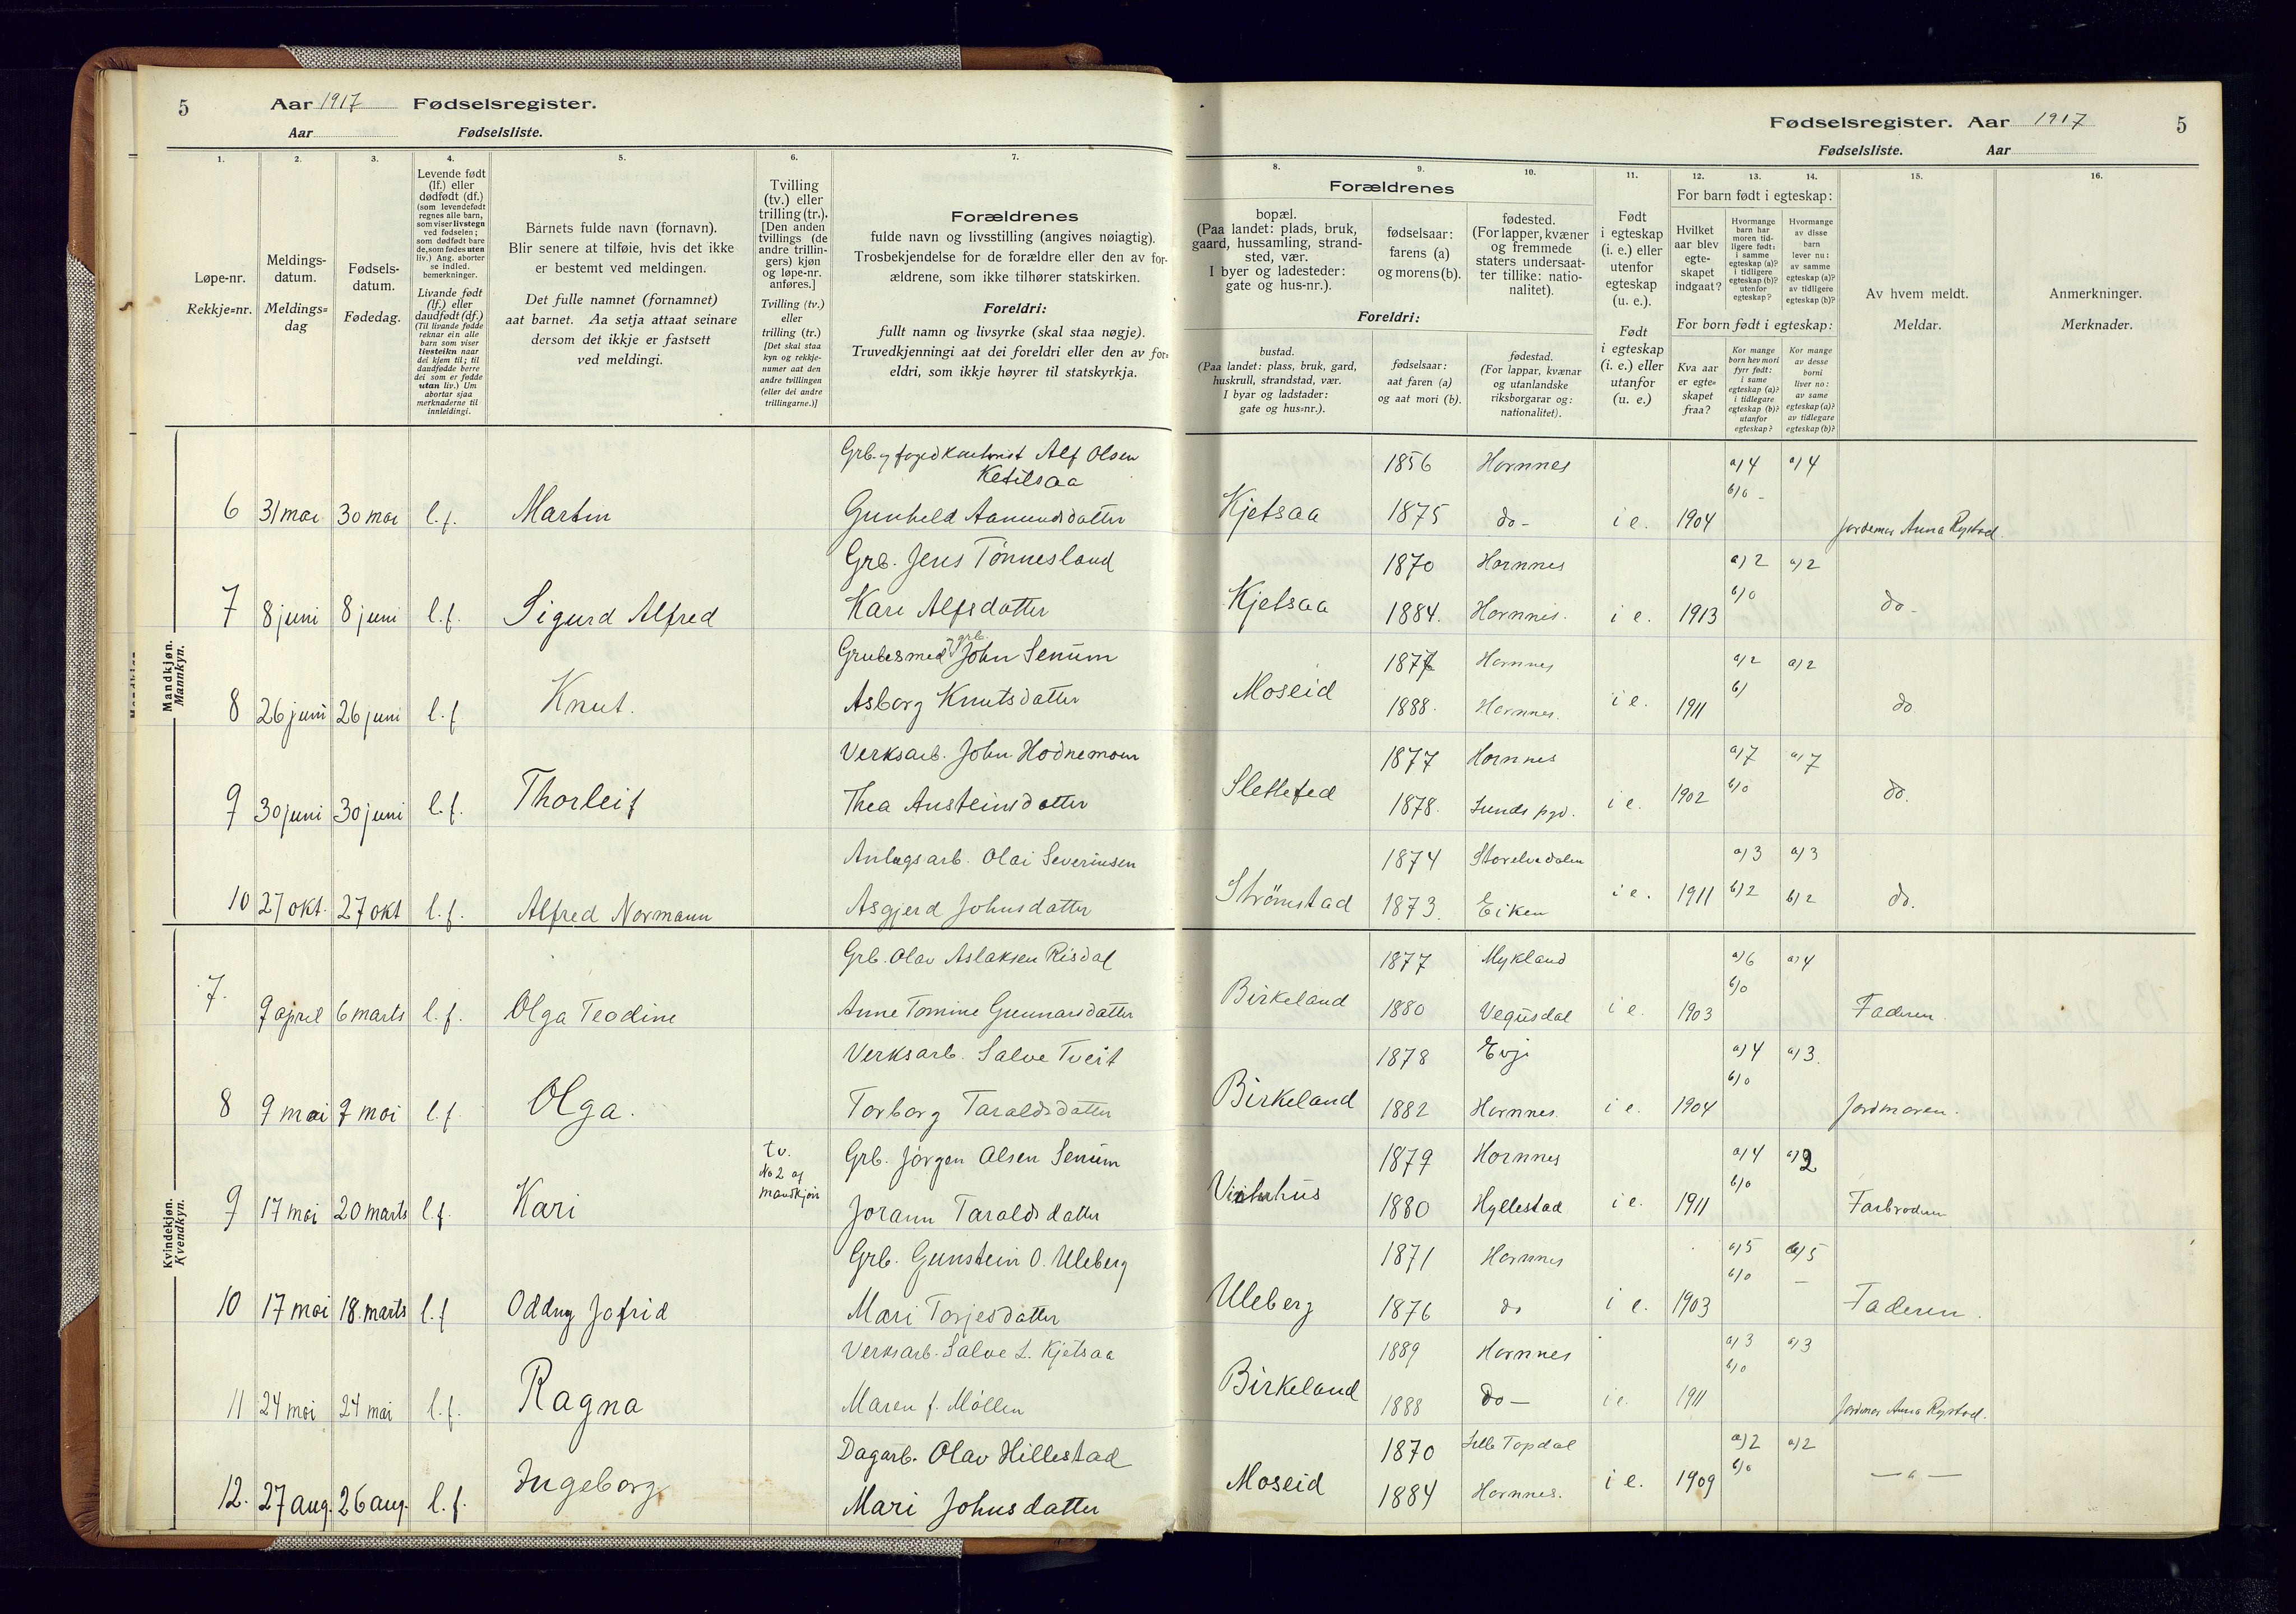 5 Aar 1917 Fødselsregister.
Aar Fødselsliste.
1.
Løpe-nr.
Rekkje=nr.
2.
Meldings-
datum.
Meldings=
dag
3.
Fødsels-
datum.
Fødedag.
4.
Levende født
(lf.) eller
dødfødt (df.)
(som levendefødt
regnes alle barn,
som viser livstegn
ved fødselen;
som dødfødt bare
de, som fødes uten
liv.) Ang. aborter
se indled.
bemerkninger.
Livande født
(lf.) eller
daudfødt (df.)
(Til livande fødde
reknar ein alle
barn som viser
livsteikn naar
dei kjem til; til
daudfødde berre
dei som er fødde
utan liv.) Um
abortar sjaa
merknaderne til
innleidingi.
5.
Barnets fulde navn (fornavn).
Blir senere at tilføie, hvis det ikke
er bestemt ved meldingen.
Det fulle namnet (fornamnet)
aat barnet. Aa setja attaat seinare
dersom det ikkje er fastsett
ved meldingi.
6.
Tvilling
(tv.) eller
trilling (tr.).
[Den anden
tvillings (de
andre trillin-
gers) kjøn
og løpe-nr.
anføres.]
Tvilling (tv.)
eller
trilling (tr.)
[Det skal staa
kyn og rekkje-
numer aat den
andre tvillingen
(eller dei andre
trillingarne.)]
7.
Forældrenes
fulde navn og livsstilling (angives nøiagtig).
Trosbekjendelse for de forældre eller den av for-
ældrene, som ikke tilhører statskirken.
Foreldri:
fullt namn og livsyrke (skal staa nøgje).
Truvedkjenningi aat dei foreldri eller den av for=
eldri, som ikkje høyrer til statskyrkja.
Fødselsregister. Aar 1917 5
Fødselsliste. Aar
8.
Forældrenes
bopæl.
(Paa landet: plads, bruk,
gaard, hussamling, strand-
sted, vær.
I byer og ladesteder:
gate og hus-nr.).
Foreldri:
bustad.
(Paa landet: plass, bruk, gard,
huskrull, strandstad, vær.
I byar og ladstader:
gate og hus=nr.).
9.
fødselsaar:
farens (a)
og morens (b).
fødselsaar:
aat faren (a)
og aat mori (b).
10.
fødested.
(For lapper, kvæner
og fremmede
staters undersaat-
ter tillike: natio-
nalitet).
fødestad.
(For lappar, kvænar
og utanlandske
riksborgarar og:
nationalitet).
11.
Født
i egteskap
(i. e.) eller
utenfor
egteskap
(u. e.).
Født
i egteskap
(i. e.) eller
utanfor
(u. e.)
12. 13. 14.
For barn født i egteskap:
Hvilket
aar blev
egte-
skapet
indgaat?
Hvormange
barn har
moren tid-
ligere født:
i samme
egteskap (a)?
i tidligere
egteskap (b)?
utenfor
egteskap?
Hvormange
av disse
barn
lever nu:
av samme
egteskap (a)?
av tidligere
egteskap (b)?
For born født i egteskap:
Kva aar
er egte=
skapet
fraa?
Kor mange
born hev mori
fyrr født:
i same
egteskap (a)?
i tidlegare
egteskap (b)?
utanfor
egteskap?
Kor mange
av desse
borni
liver no:
av same
egteskap (a)?
av tidlegare
egteskap (b)?
15.
Av hvem meldt.
Meldar.
16.
Anmerkninger.
Merknader.
Mandkjøn.
Mannkyn.
Grb. og Alf Olsen 1856 Hornnes a) 4 a) 4
Ketilsaa b) 0 -
6 31 mai 30 mai l.f. Martin Gunhild Aamundsdatter Kjetsaa 1875 do- i e. 1904 Jordemor Anna Rystad.
Grb. Jens Tønnesland 1870 Hornnes a) 2 a) 2
7 8 juni 8 juni l.f. Sigurd Alfred Kari Alfsdatter Kjetsaa 1884. Hornnes. i e. 1913 b) 0 do-
Grubesmed og grb. John Senum 1877 Hornnes a) 2 a) 2
8 26 juni 26 juni l.f. Knut. Asborg Knutsdatter Moseid 1888. Hornnes. i e. 1911 b) do
Verksarb. John Hodnemoen 1877 Hornnes a) 7 a) 7
9 30 juni 30 juni l.f. Thorleif Thea Austeinsdatter Slettefed 1878. Lunds pgd. i e. 1902 b) 0 do.
Anlegsarb. Olai Severinsen 1874 Storelvedalen a) 3 a) 3
10 27 okt. 27 okt l.f. Alfred Normann Asgjerd Johnsdatter Strømstad 1873. Eiken i e. 1911 b) 2 b) 2 do.
Kvindekjøn.
Kvendkyn.
Grb. Olav Aslaksen Risdal 1877 Mykland a) 6 a) 4
7. 9 april 6 marts l.f. Olga Teodine Anne Tomine Gunnarsdatter Birkeland 1880 Vegusdal i e. 1903 b) 0 Faderen.
Verksarb. Salve Tveit 1878 Evje a) 4 a) 3.
8 9 mai 7 mai l.f. Olga. Torborg Taraldsdatter Birkeland 1882 Hornnes. i e. 1904 b) 0 Jordmoren.
tv.
No 2 af
mandkjøn
Grb. Jørgen Olsen Senum 1879 Hornnes a) 4 a) 2
9 17 mai 20 marts l.f. Kari Jorann Taraldsdatter 1880 Hyllestad i e. 1911 b) 0 Farbroderen
Grb. Gunstein O. Uleberg 1871 Hornnes a) 5 a) 5
10 17 mai 18. marts l.f Oddny Jofrid Mari Torjesdatter Uleberg 1876 do i e. 1903 b) 0 - Faderen.
Verksarb. Salve L. Kjetsaa 1889 Hornnes a) 3 a) 3
11 24 mai 24 mai l.f. Ragna Maren f. Møllen Birkeland 1888 do- i e. 1911 b) 0 Jordmor Anna Rystad.
Dagarb. Olav Hillestad 1870 Lille Topdal a) 2 a) 2
12. 27 aug. 26 aug. l.f. Ingeborg Mari Johnsdatter Moseid 1884 Hornnes. i e. 1909 b) 0 — " —